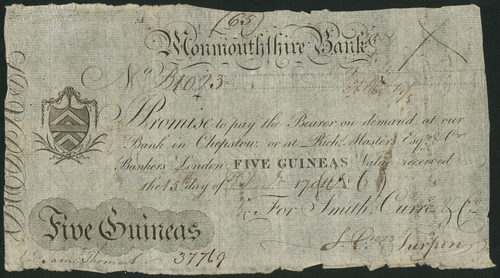 (65)
Monmouthshire Bank
No. B1093
Promise to pay the Bearer on demand at our
Bank in Chepstow, or at Richd. Masters Esqr. & Co.
Bankers London, FIVE GUINEAS Value received
the 15 day of
For Smith, Curre & Co.
Five Guineas
37769